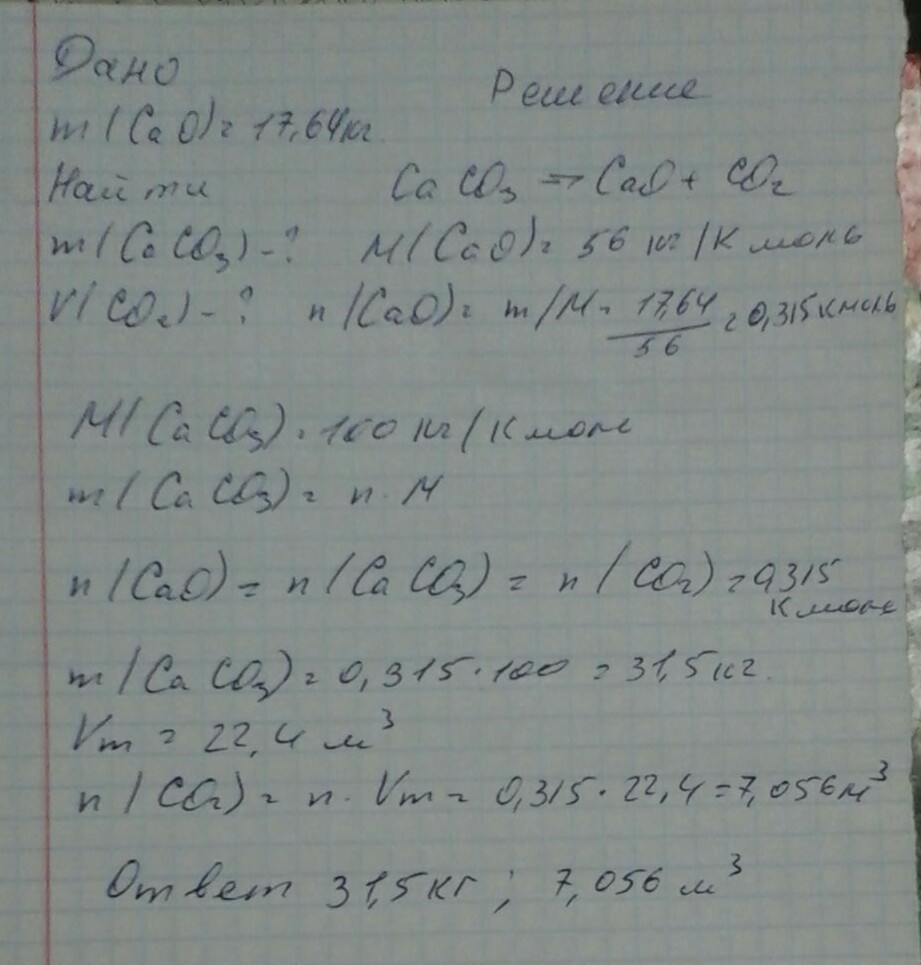 Дано
Решение
m(CaO)= 17,64кг.
Найти
CaCO₃ => CaO + CO₂
m(CaCO₃)-? M(CaO)= 56 кг/Кмоль
V(CO₂)-? n(CaO)= m/M= 17,64/56 =0,315Кмоль
M(CaCO₃)=100 кг/Кмоль
m(CaCO₃)= n·M
n(CaO)= n(CaCO₃)= n(CO₂)=0,315
Кмоль
m(CaCO₃)=0,315·100 =31,5кг.
Vm = 22,4 м³
n(CO₂)= n·Vm= 0,315·22,4=7,056м³
Ответ 31,5кг; 7,056 м³